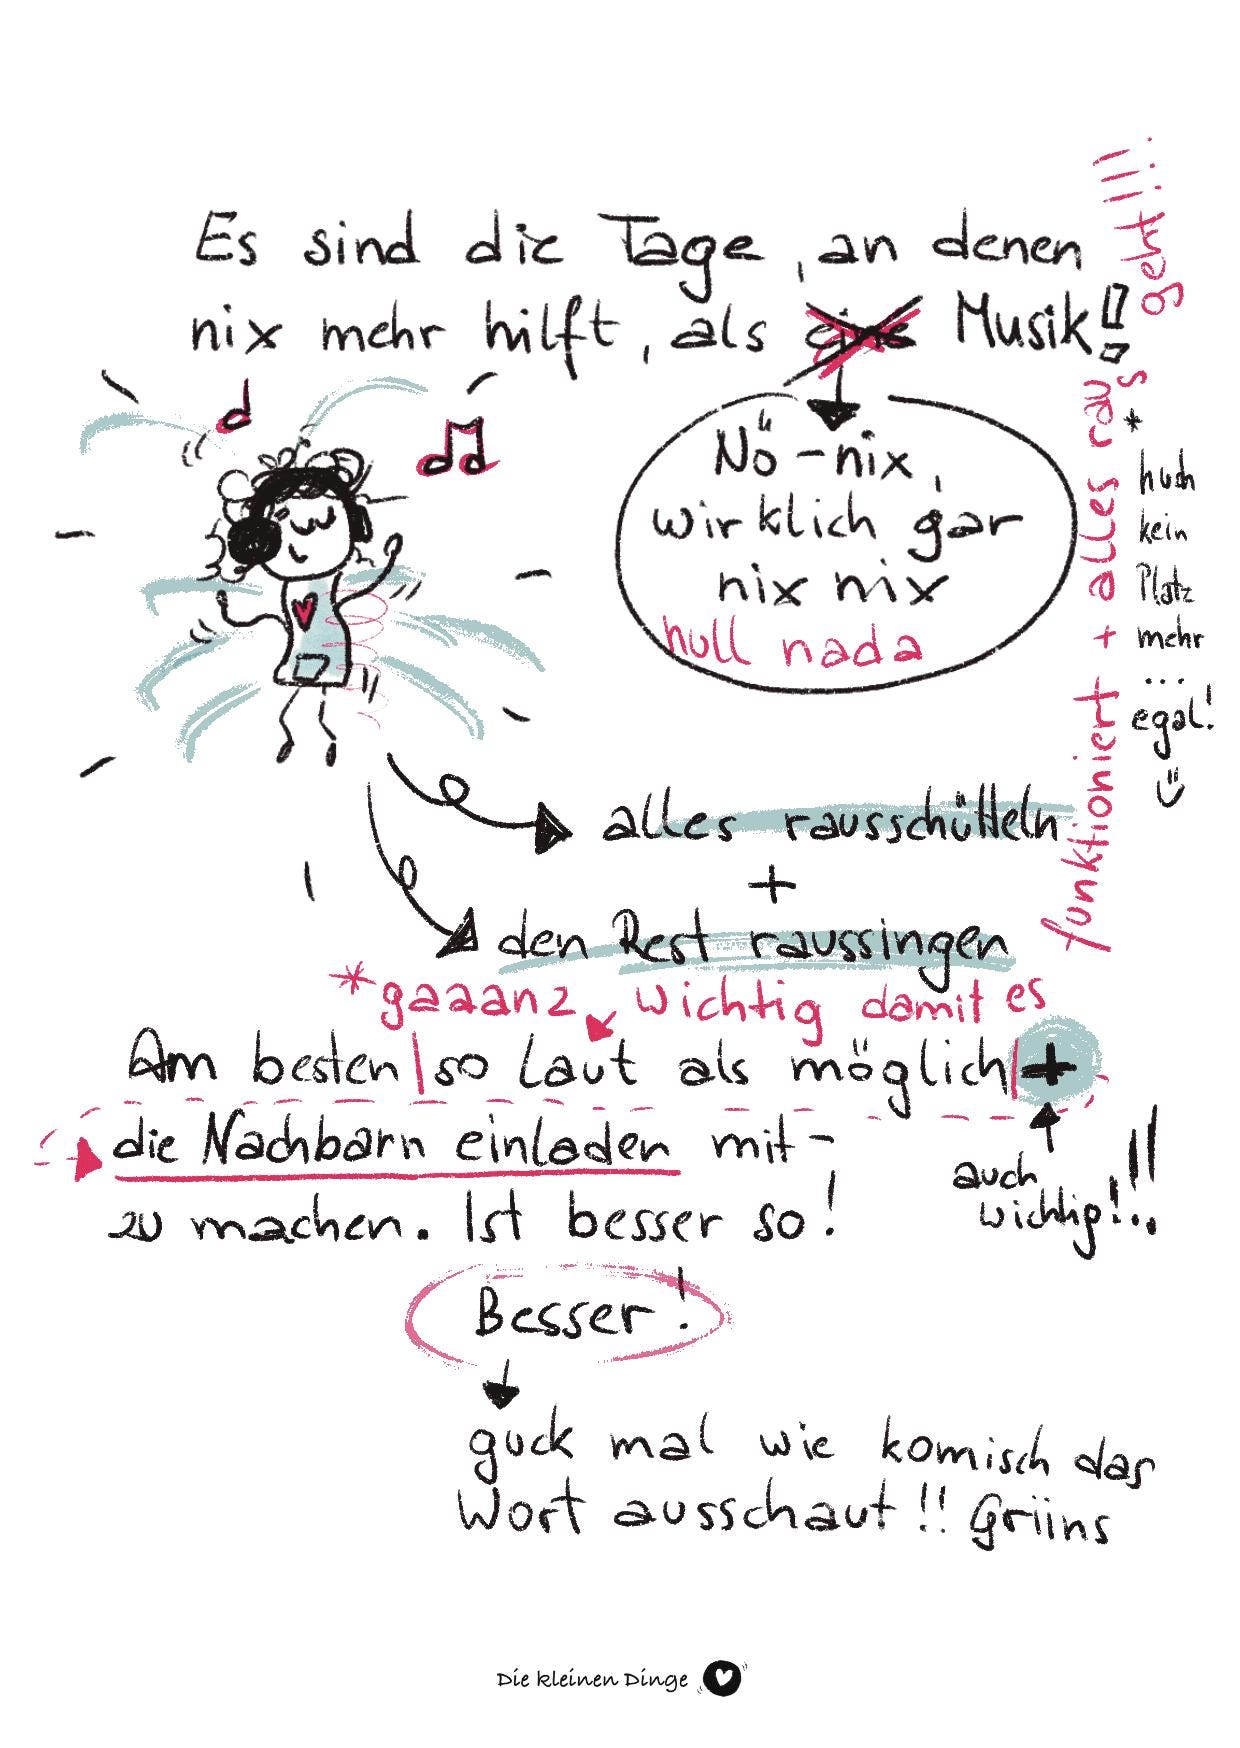 Es sind die Tage, an denen
nix mehr hilft, als eine Musik!
Nö-nix,
wirklich gar
nix nix
null nada
alles rausschütteln
+
den Rest raussingen
*gaaanz wichtig damit es
funktioniert + alles raus
geht!!!
*
huch
kein
Platz
mehr
...
egal!
Am besten so laut als möglich +
die Nachbarn einladen mit-
zu machen. Ist besser so!
auch
wichtig!!!
Besser!
guck mal wie komisch das
Wort ausschaut!! Griins
Die kleinen Dinge